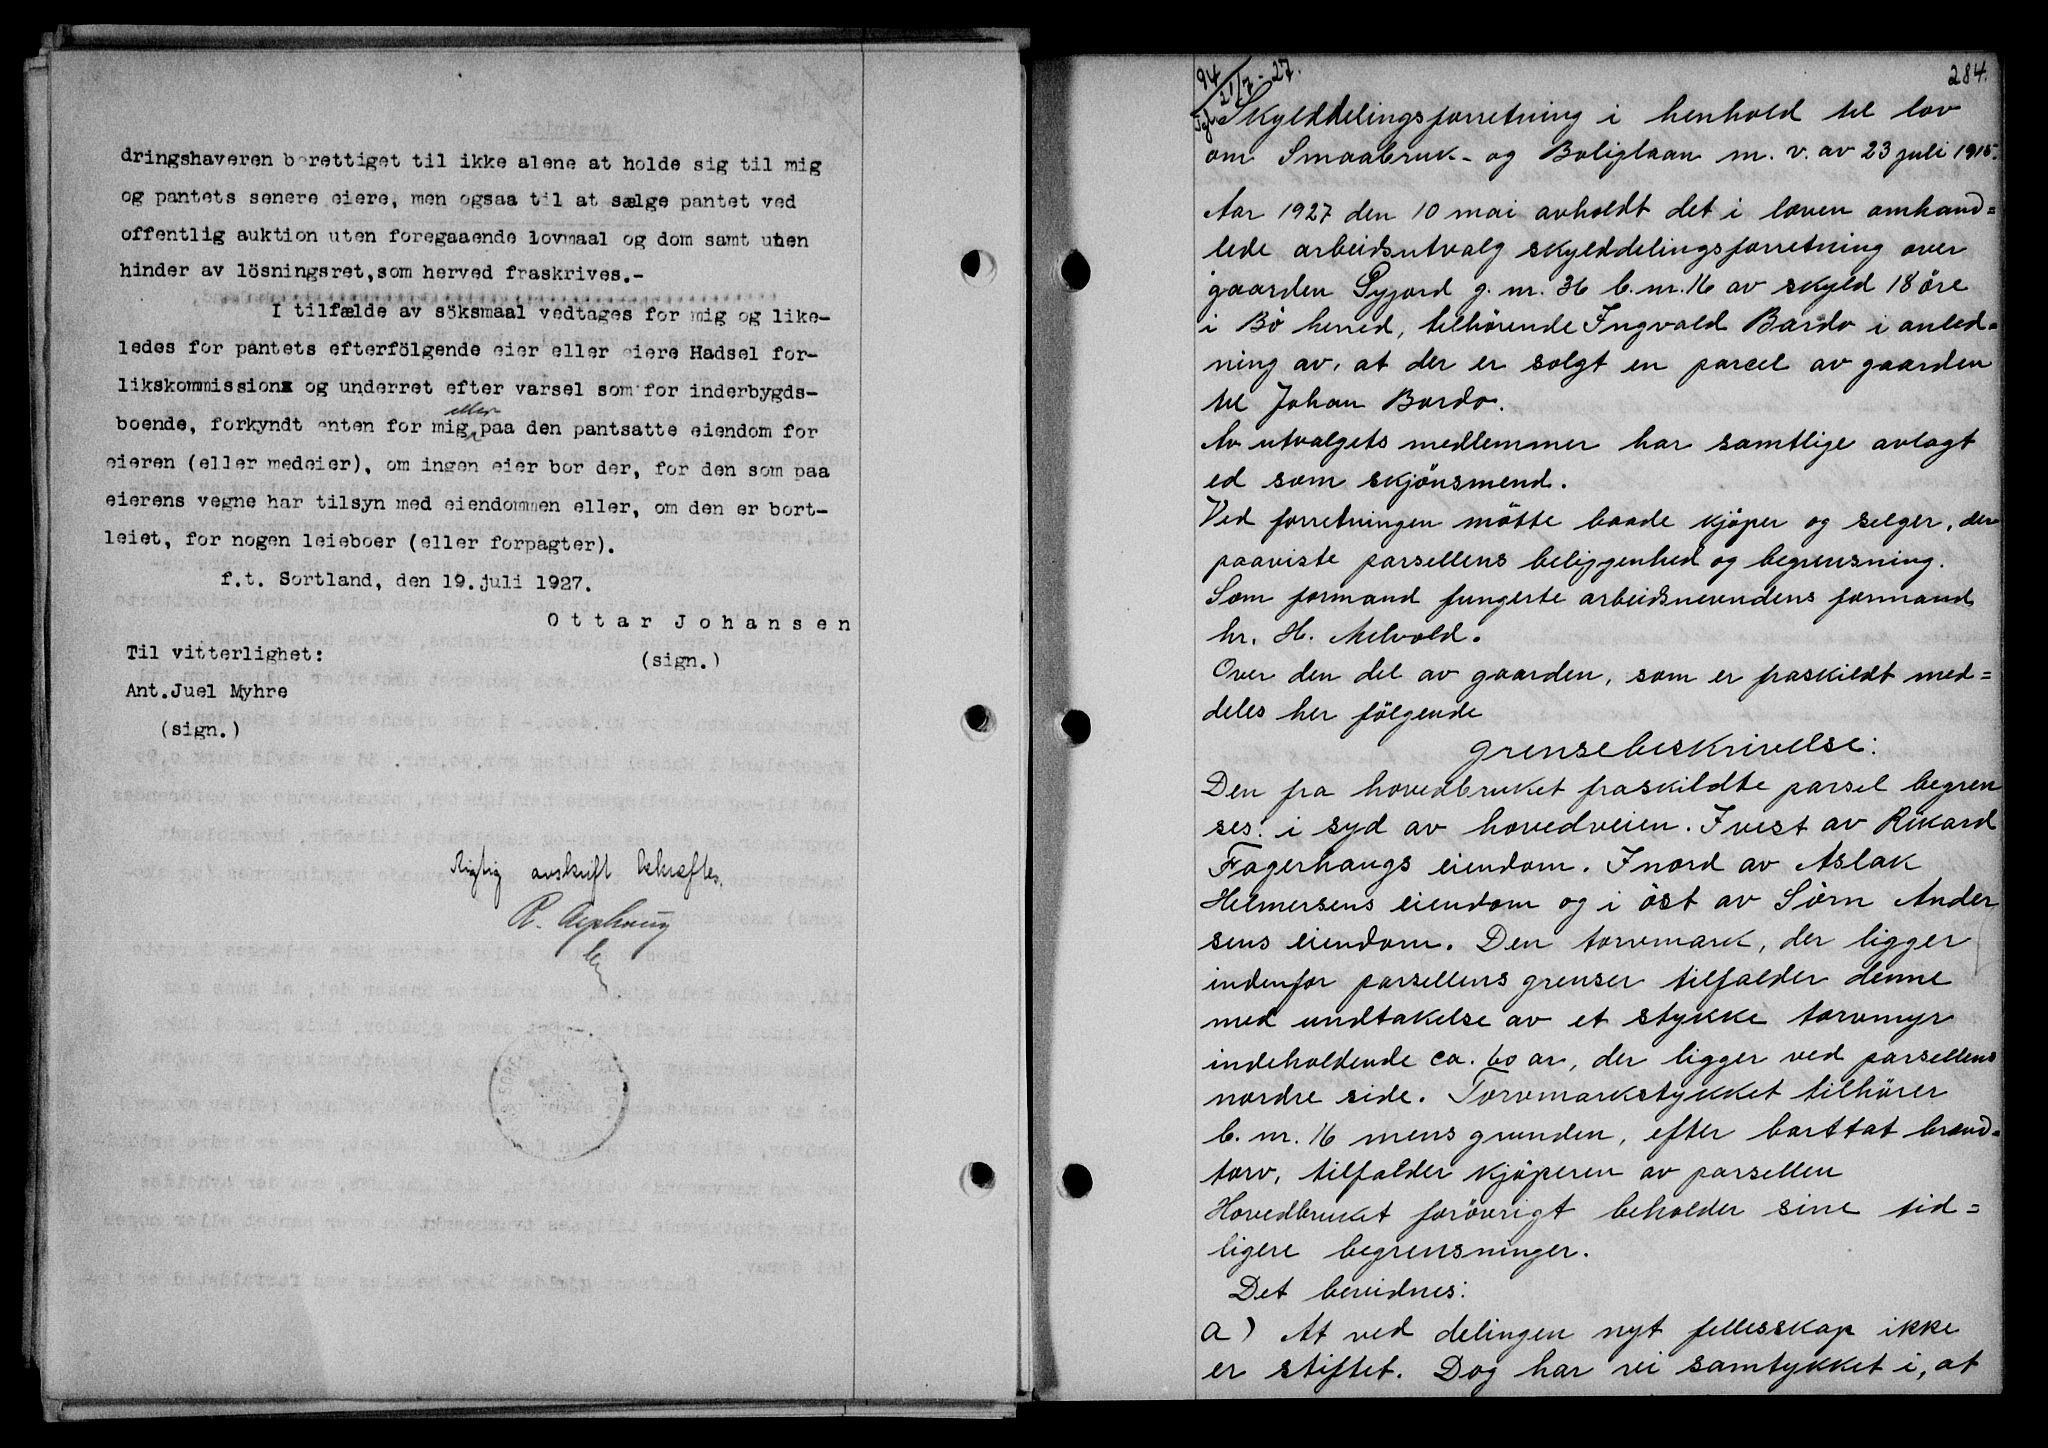 dringshaveren berettiget til ikke alene at holde sig til mig
og pantets senere eiere, men ogsaa til at sælge pantet ved
offentlig auktion uten foregaaende lovmaal og dom samt uten
hinder av lösningsret, som herved fraskrives.-
I tilfælde av söksmaal vedtages for mig og like-
ledes for pantets efterfölgende eier eller eiere Hadsel for-
likskommission og underret efter varsel som for inderbygds-
eller
boende, forkyndt enten for mig paa den pantsatte eiendom for
eieren (eller medeier), om ingen eier bor der, for den som paa
eierens vegne har tilsyn med eiendommen eller, om den er bort-
leiet, for nogen leieboer (eller forpagter).
f.t. Sortland, den 19. juli 1927.
Ottar Johansen
Til vitterlighet:
(sign.)
Ant. Juel Myhre
(sign.)
Rigtig avskrift bekræftes.
94
21/7-27.
284.
Skylddelingsforretning i henhold til lov
om Smaabruk- og Boliglaan m. v. av 23 juli 1915.
Aar 1927 den 10 mai avholdt det i loven omhand=
lede arbeidsutvalg skylddelingsforretning over
gaarden g. nr. 36 b. nr. 16 av skyld 18 öre
i Bö herred, tilhörende Ingvald Bardo i anled=
ning av, at der er solgt en parcel av gaarden
til Johan Bardo.
Av utvalgets medlemmer har samtlige avlagt
ed som skjönsmend.
Ved forretningen mötte baade kjöper og selger, der
paaviste parsellens beliggenhed og begrensning.
Som formand fungerte arbeidsnevndens formand
hr. H. Melvold.
Over den del av gaarden, som er fraskildt med=
deles her fölgende
grensebeskrivelse:
Den fra hovedbruket fraskildte parsel begren
ses: i syd av hovedveien. I vest av Rikard
Fagerhaugs eiendom. I nord av Aslak
Helmersens eiendom og i öst av Sörn Ander
sens eiendom. Den torvmark, der ligger
indenfor parsellens grenser tilfalder denne
med undtakelse av et stykke torvmyr
indeholdende ca. 60 ar, der ligger ved parsellens
nordre side. Torvmarkstykket tilhörer
b. nr. 16 mens grunden, efter borttat brend=
torv, tilfalder kjöperen av parsellen
Hovedbruket forövrigt beholder sine tid=
ligere begrensninger.
Det bevidnes:
a) At ved delingen nyt fellesskap ikke
er stiftet. Dog har vi samtykket i, at